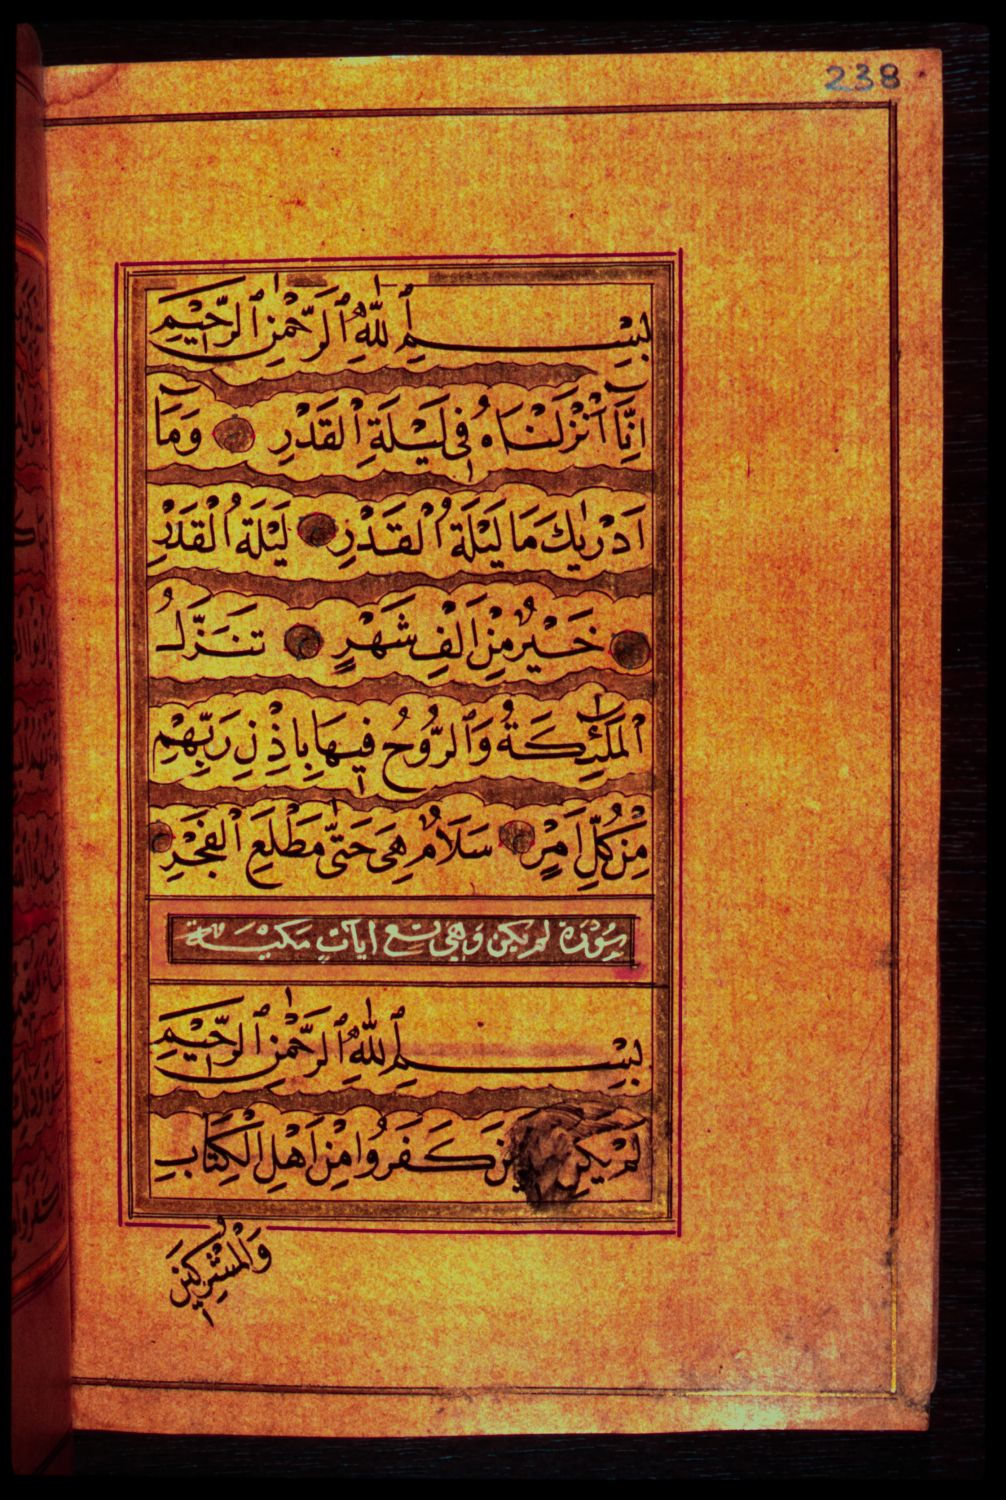 238
بِسْمِ ٱللّٰهِ ٱلرَّحْمٰنِ ٱلرَّحِيمِ
اِنَّآ اَنْزَلْنَاهُ فِى لَيْلَةِ الْقَدْرِ وَمَآ
اَدْرٰيكَ مَا لَيْلَةُ الْقَدْرِ لَيْلَةُ الْقَدْرِ
خَيْرٌ مِنْ اَلْفِ شَهْرٍ تَنَزَّلُ
الْمَلٰٓئِكَةُ وَالرُّوحُ فِيهَا بِاِذْنِ رَبِّهِمْ
مِنْ كُلِّ اَمْرٍ سَلَامٌ هِىَ حَتّٰى مَطْلَعِ الْفَجْرِ
سُورَة لم يكن وهى تسع ايات مكية
بِسْمِ ٱللّٰهِ ٱلرَّحْمٰنِ ٱلرَّحِيمِ
لَمْ يَكُنِ كَفَرُوا مِنْ اَهْلِ الْكِتَابِ
وَالْمُشْرِكِينَ